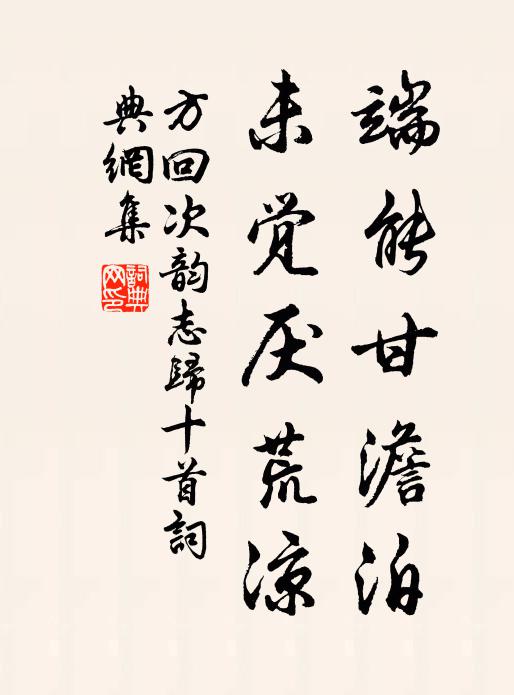 端能甘澹泊
未觉厌荒凉
方回次韵志歸十首詞
典網集
詞典
网印